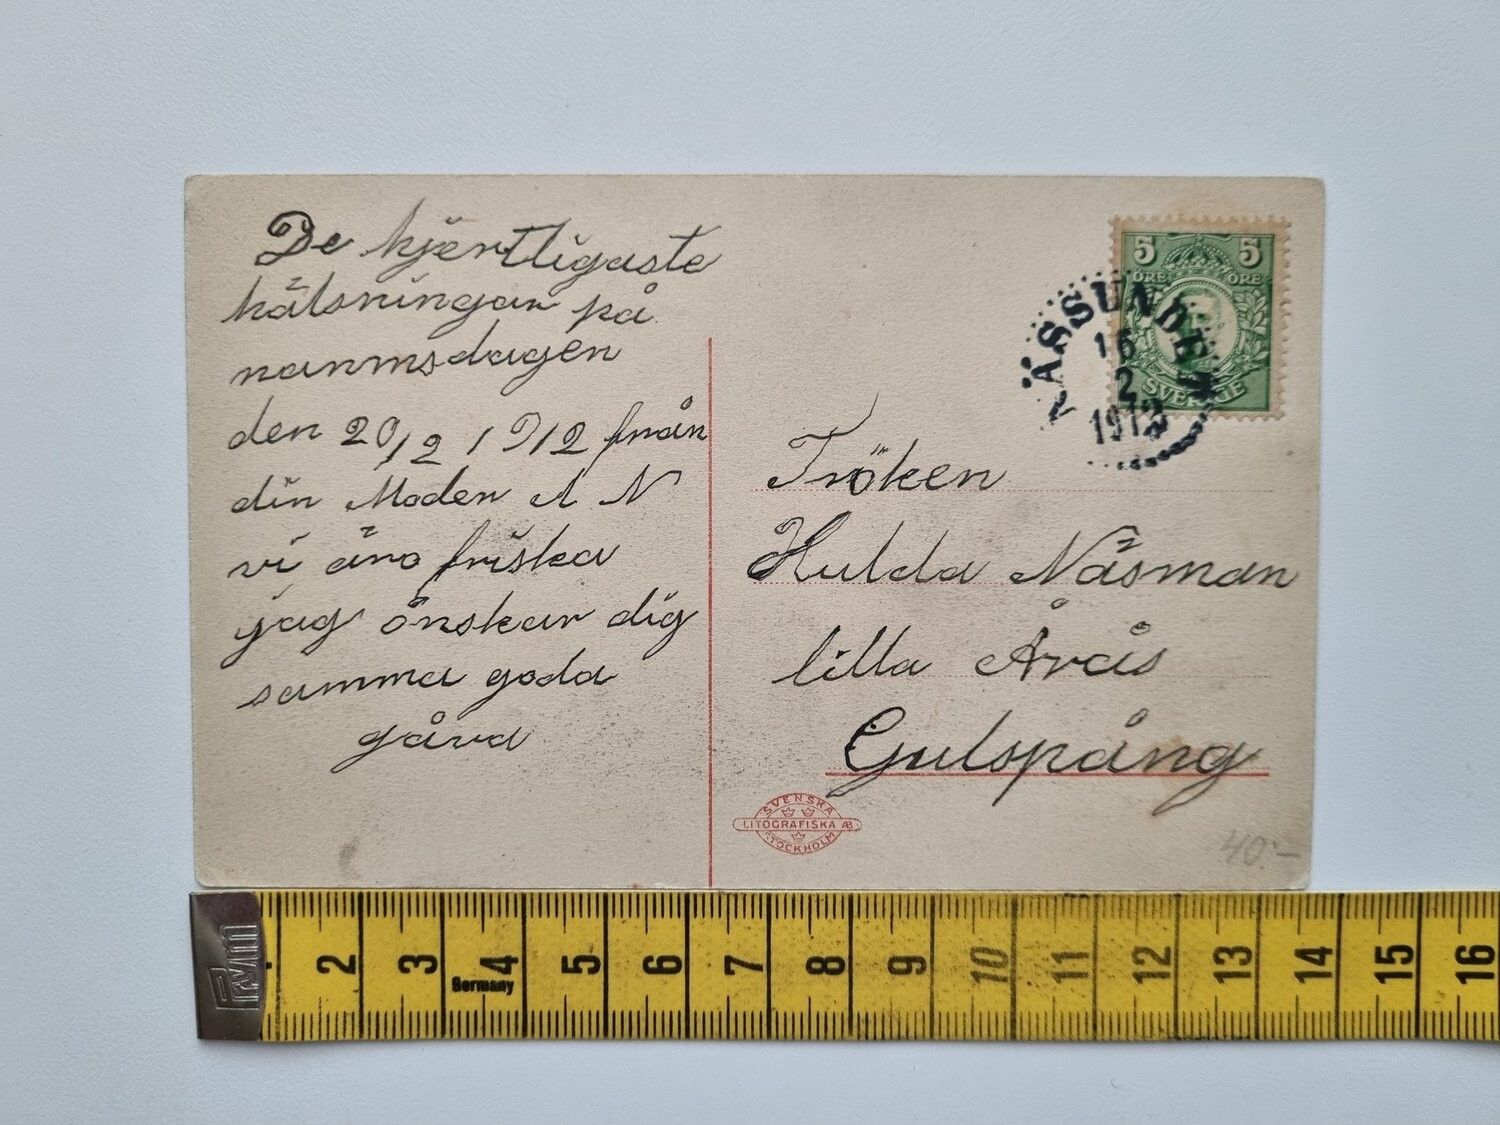 De hjertligaste
hälsningar på
nanmsdagen
den 20/2 1912 från
din Moder A N
vi äro friska
jag önskar dig
samma goda
gåva
5 5
ÖRE ÖRE
SVERIGE
NÄSSUNDET
16
2
1912
Fröken
Hulda Näsman
lilla Årås
Gulspång
SVENSKA
LITOGRAFISKA AB
STOCKHOLM
40:-
2 3 4 5 6 7 8 9 10 11 12 13 14 15 16
Germany